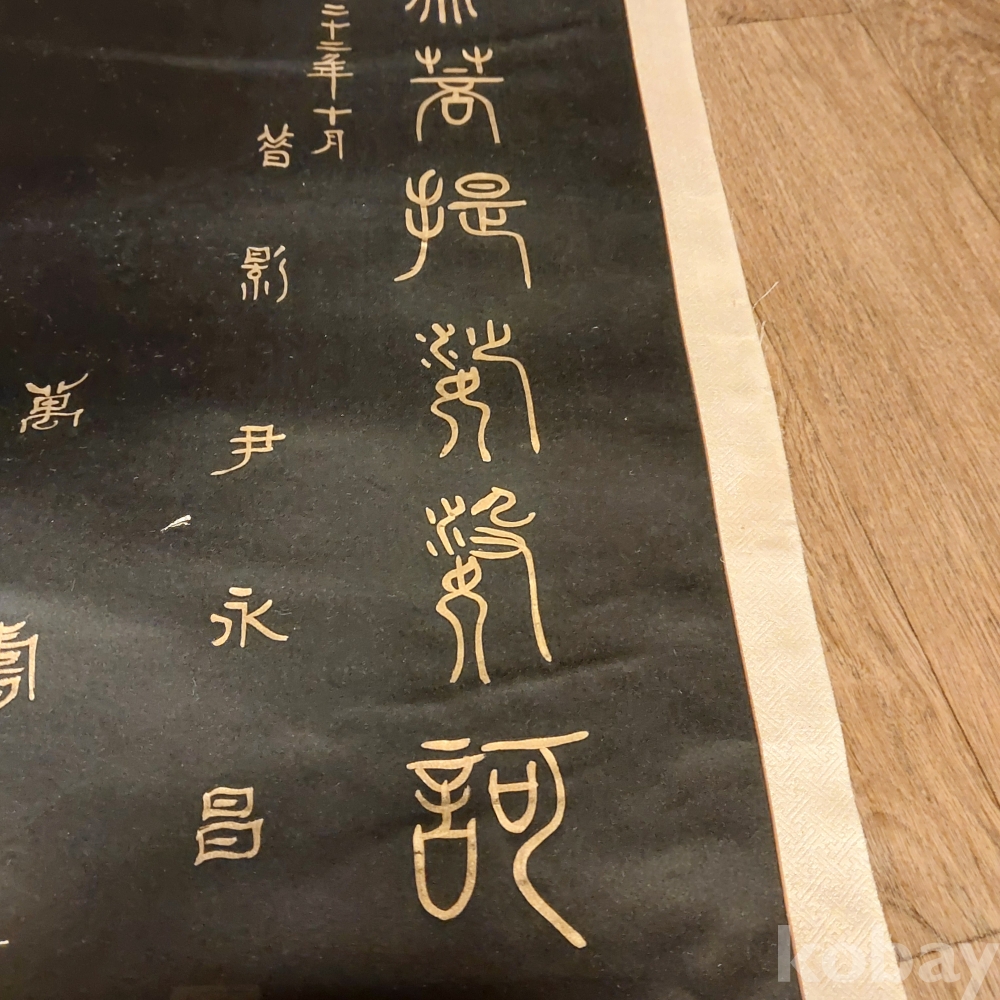 菩提娑婆訶
二十二年十月
影尹永昌
萬壽
kobay